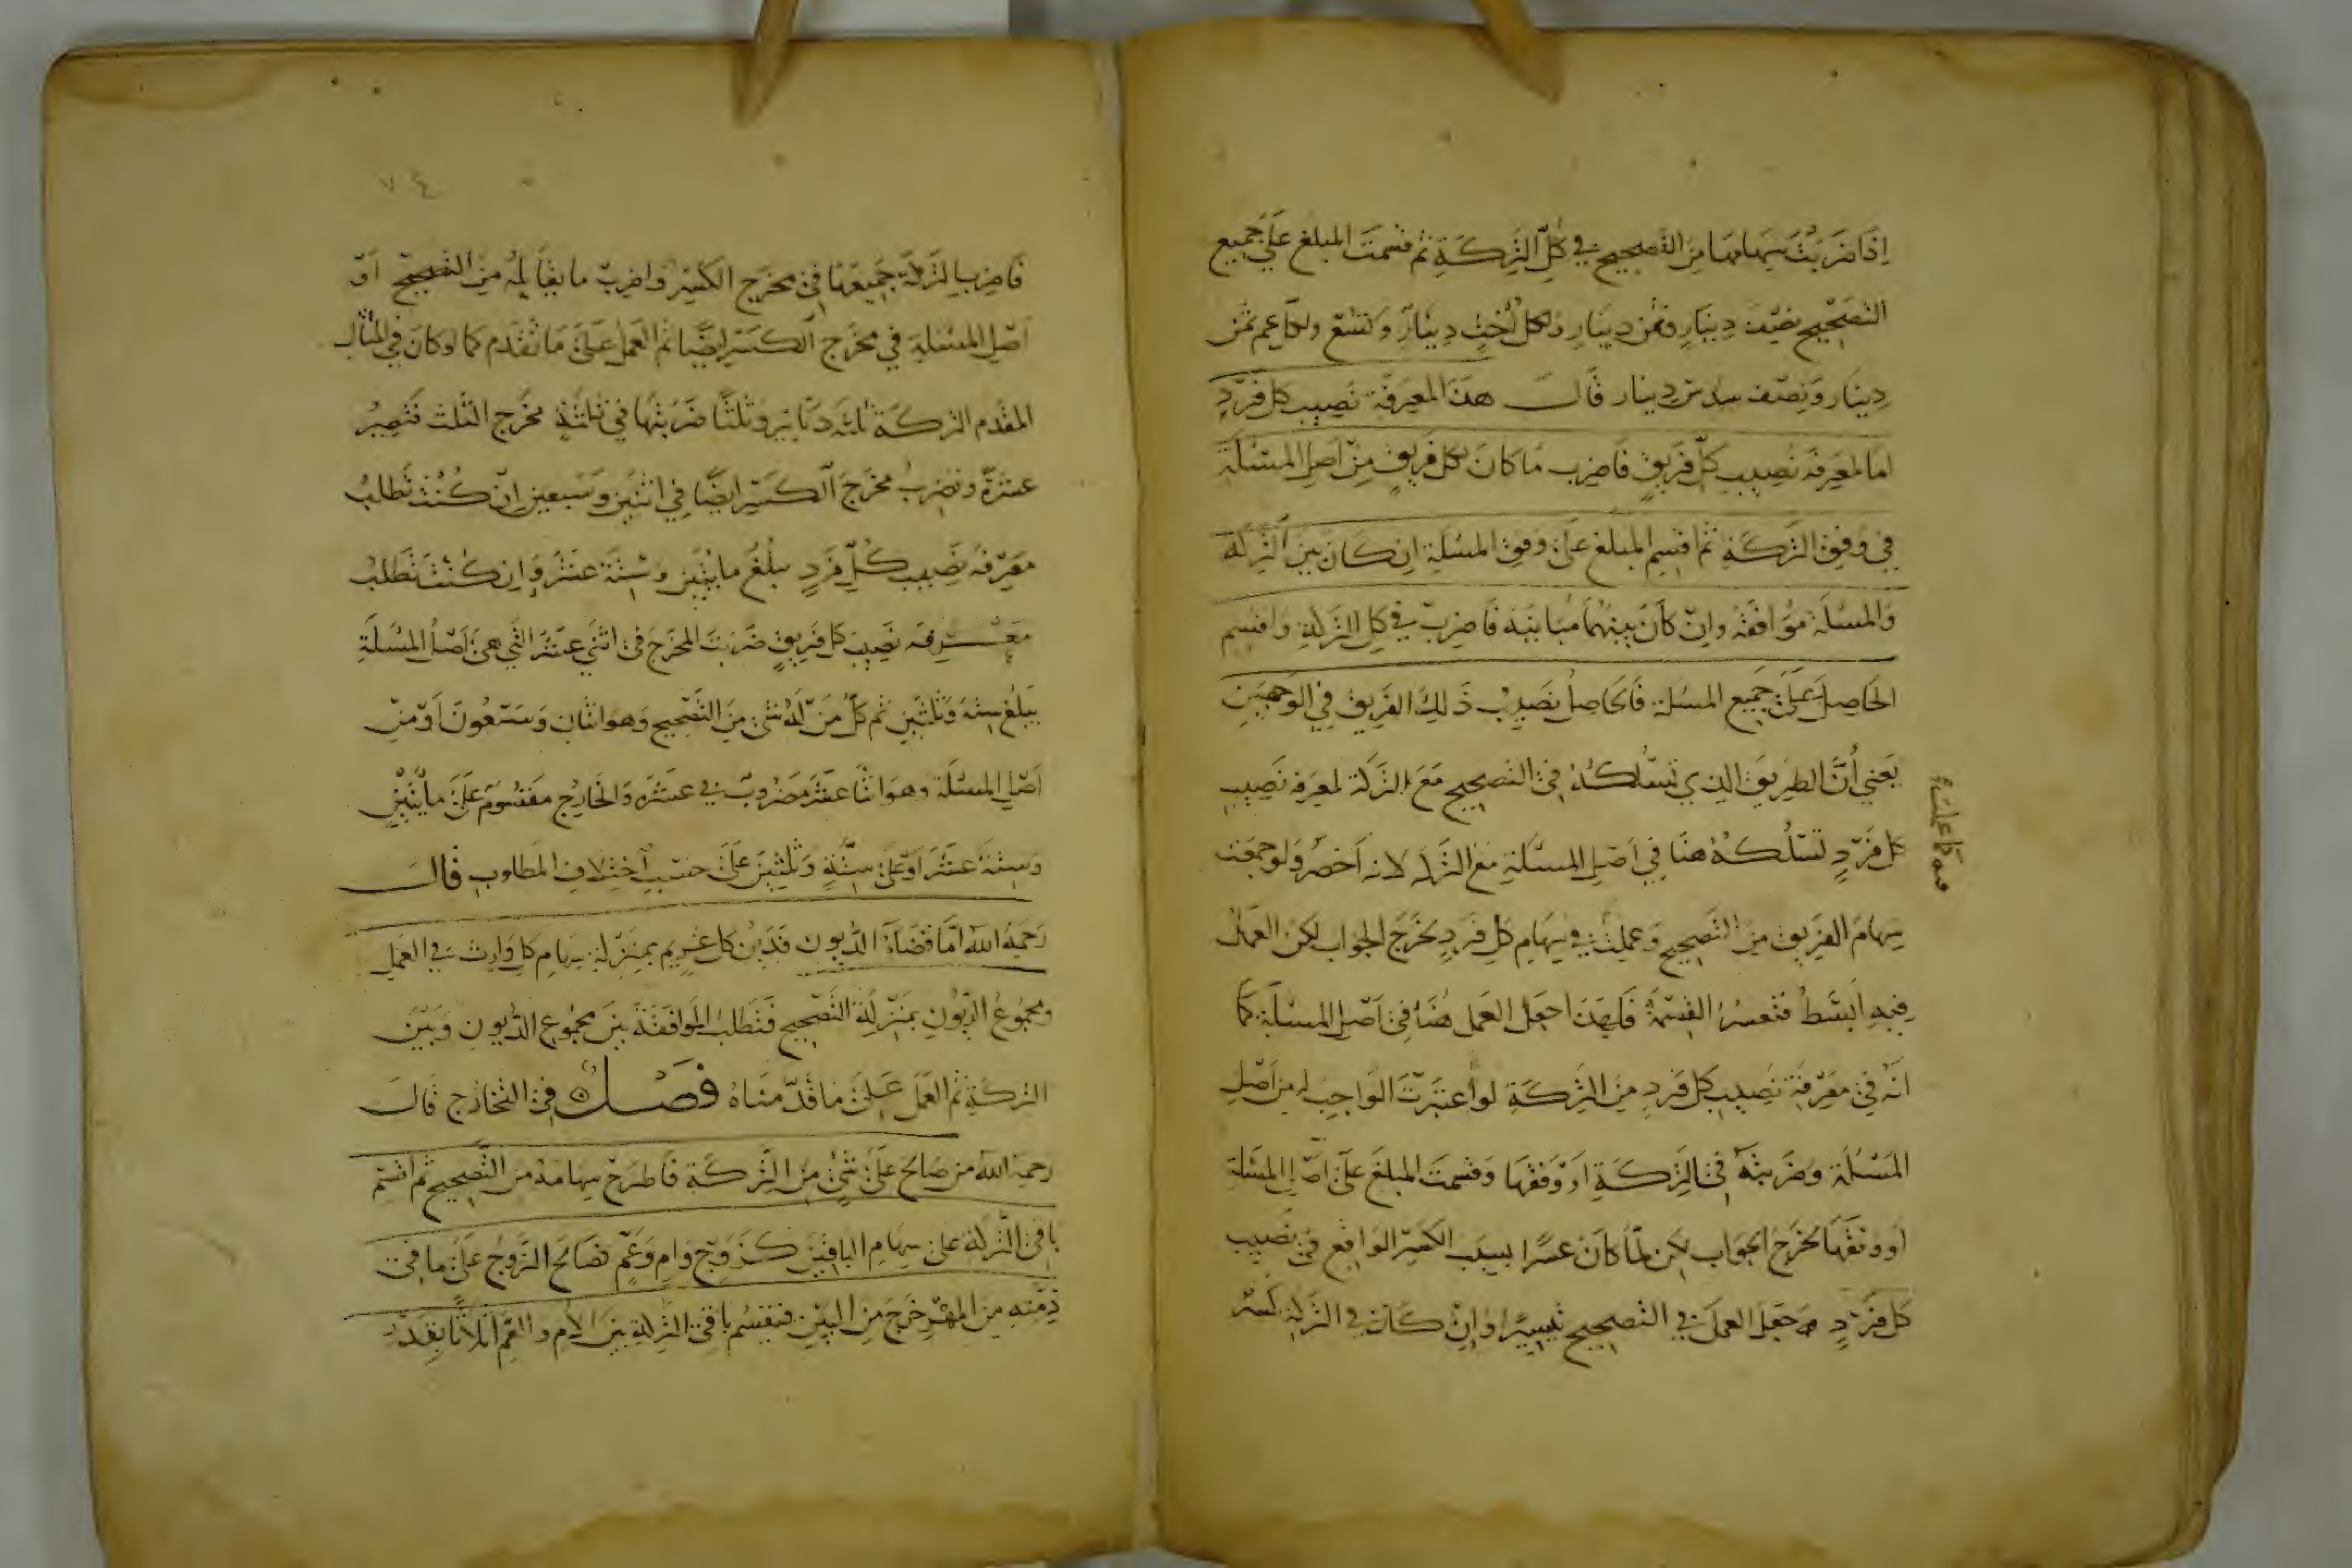 اِذَا ضَرَبْتَ سِهَامهَا مِنَ التَّصحِيحِ فِي كُلِّ التَّرِكَةِ ثم قسمتَ المبلغ عَلَى جَمِيع
التَّصْحِيحِ نصْفَ دِينَارٍ وثمن دِينَارِ ولكل اُختٍ دِينَارٌ وَتسع ولكل عم ثمن
دِينَار وَنِصْف سدس دِينار قَالَ هذا لمعرفة نَصِيبِ كل فَرْدٍ
اما لمعرفة نصيبِ كلّ فَرِيقٍ فَاضرب مَا كَانَ لكل فَرِيقٍ مِنْ اَصْلِ المسْئَلَةِ
في وفق التَّركَةِ ثم اقسِم المبلغ علَى وفق المسْئَلَةِ اِن كَانَ بين التَّرِكَة
وَالمسئلَة مُوَافَقَة وانْ كَانَ بينهُمَا مُبَايَنَة فَاضربْ في كل التركة واقسم
الحَاصِلَ عَلَى جَمِيع المسئلة فَالحَاصِلُ نَصِيبُ ذَلِكَ الفَرِيق فِي الوَجهَينِ
يَعْنِي أنَّ الطرِيقَ الذِي تَسْلُكُهُ فى التصحيح مَعَ التركة لمعرفة نَصِيبِ
كل فَرْدٍ تَسْلُكُهُ هنَا فِي اَصْلِ المسئلَةِ مع التركة لانه اَخصَرُ وَلو جمعت
سِهَامَ الفَرِيق مِنَ التَّصحِيحِ وَعملت فِي سِهَامِ كل فَردٍ يخرُج الجواب لكن العمل
فِيهِ اَبْسَطُ فتعسرُ القِسْمَةُ فَلِهَذَا جعَل العَمل هُنَا فى اَصْلِ المسئلَة كَمَا
اَنَهُ فِي معْرِفَة نَصِيبِ كل فَردٍ مِنَ التَّرِكَةِ لو اعتبَرتَ الوَاجِبَ له مِن اَصْلِ
المَسْئَلَة وَضَرَبتهُ فى التَّرِكَةِ اَوْ وَفقهَا وَقسمتَ المبلغَ علَى اَصْلِ المسْئَلة
اَو وفقهَا يخرج الجوَاب لكن لمَّا كانَ عسرًا بِسبب الكَسْرِ الوَاقِع فى نَصِيب
كل فَرْدٍ جعل العملَ فى التصحِيحِ تيسيرًا وَاِنْ كَانَ في التركة كَسْر
فَاضرب التَّركَة جَمِيعَهَا فى مخرَج الكَسْر وَاضربْ مَا بقَا لهُ مِنَ التصحيح اَوْ
اَصْل المسْئلة فى مخرَج الكَسْر ايضًا ثم العمل عَلَى مَا تقدم كما لو كانَ في المثال
المقدم التركَة ثلثَة دنَانِير وثلثًا ضَرَبْتهَا فى ثلثة مخرج الثلث فتصِيرُ
عشرَةً وتضْربُ مخرَج الكَسْر ايضًا فِي اثنَينِ وَسَبعين اِنْ كُنْتَ تَطلبُ
مَعْرِفَة نَصِيب كُلِّ فَردٍ يبلغُ مايتين وستة عشَر وَاِن كُنْتَ تَطلبُ
مَعْرِفَه نَصِيب كل فَرِيقٍ ضَرَبتَ المخرَج فى اثنى عشَرَ التي هىَ اَصْلُ المسْئلَةِ
يَبلغ سِتَة وَثلثين ثم كلُّ مَنْ لَهُ شَىْء مِنَ التَّصحِيح وَهوَ اثنان وَسَبعُونَ اَوْ مِنْ
اَصْلِ المسئلَة وهوَ اثنَا عشَرَ مَضرُوبٌ فى عشَرَة وَالخَارِج مَقسُومٌ عَلَى مايتَينِ
وَسِتَة عشَر اَوْ علَى سِتَّةٍ وَثلثينَ عَلَى حَسَب اخْتِلافِ المَطلوب قالَ
رَحِمَهُ الله امَّا قضَاءُ الدُّيون فَدَيْن كل غَرِيم بِمَنْزِلَة سِهَامِ كل وَارِث فى العَمَلِ
ومجْمُوعُ الدّيون بمَنْزِلَة التَّصْحِيح فَتطلب الموافَقَة بَين مجمُوع الديُون وَبَيْنَ
التركَةِ ثم العَمَل عَلَى مَا قَدَّمْنَاهُ فصْل فِى التخَارُج قَالَ
رحمَهُ الله من صَالحَ عَلَى شَىْءٍ مِنَ التَّركَةِ فَاطرَحْ سِهَامَهُ من التَّصحِيحِ ثم اقسم
بَاقى التَّركة علَى سِهَام البَاقِينَ كَزَوْجٍ وَامٍ وَعَمٍّ فصَالحَ الزَّوج عَلَى مَا فى
ذمَّتِه مِنَ المهْرِ وَخَرَجَ مِنَ البَيْنِ فَتقسَّمُ بَاقِى التَّركَةِ بَينَ الام والعَمِّ اثلاثًا بِقَدْرِ